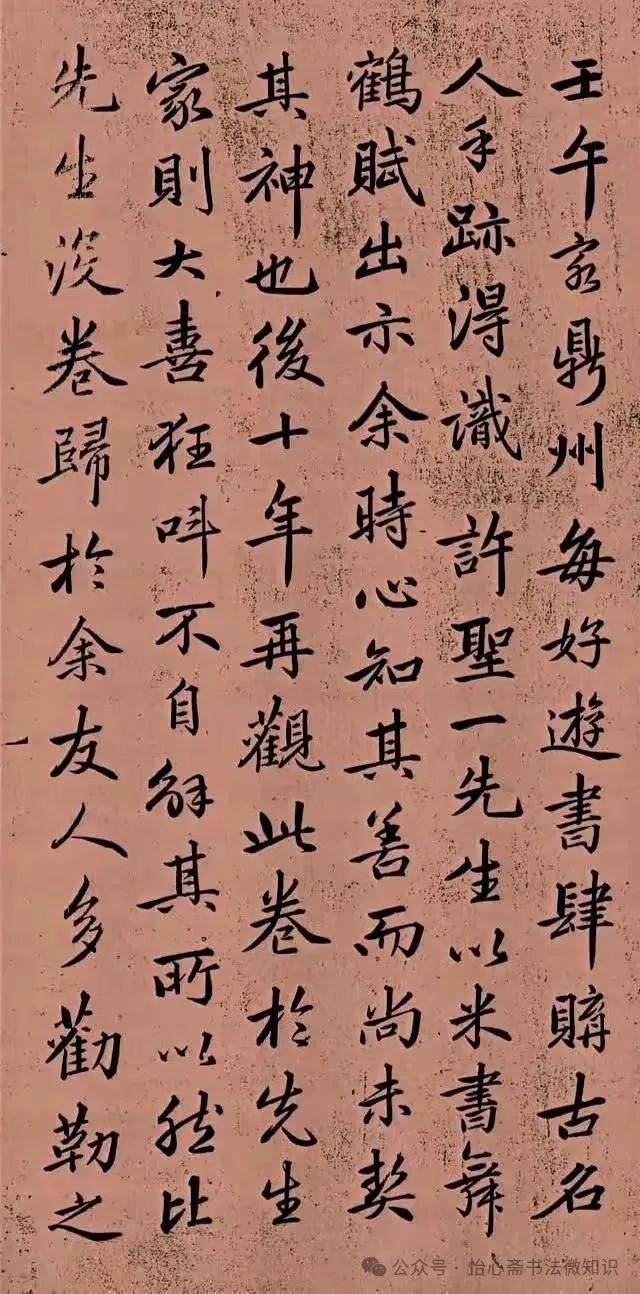 壬午客鼎州每好遊書肆購古名
人手跡得識許聖一先生以米書舞
鶴賦出示余時心知其善而尚未契
其神也後十年再觀此卷於先生
家則大喜狂呌不自解其所以然比
先生没卷歸於余友人多勸勒之
公众号·怡心斋书法微知识